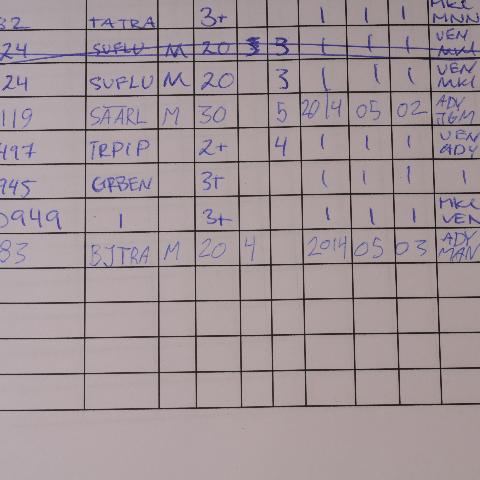 32 TATRA 3+ | | | MKL MNN
24 SUFLU M 20 3 | | | VEN MKL
24 SUFLU M 20 3 | | | VEN MKL
119 SAARL M 30 5 2014 05 02 ADY JGM
497 TRPIP 2+ 4 | | | VEN ADY
945 GRBEN 3+ | | | |
0949 | 3+ | | | MKL VEN
83 BJTRA M 20 4 2014 05 03 ADY MAN